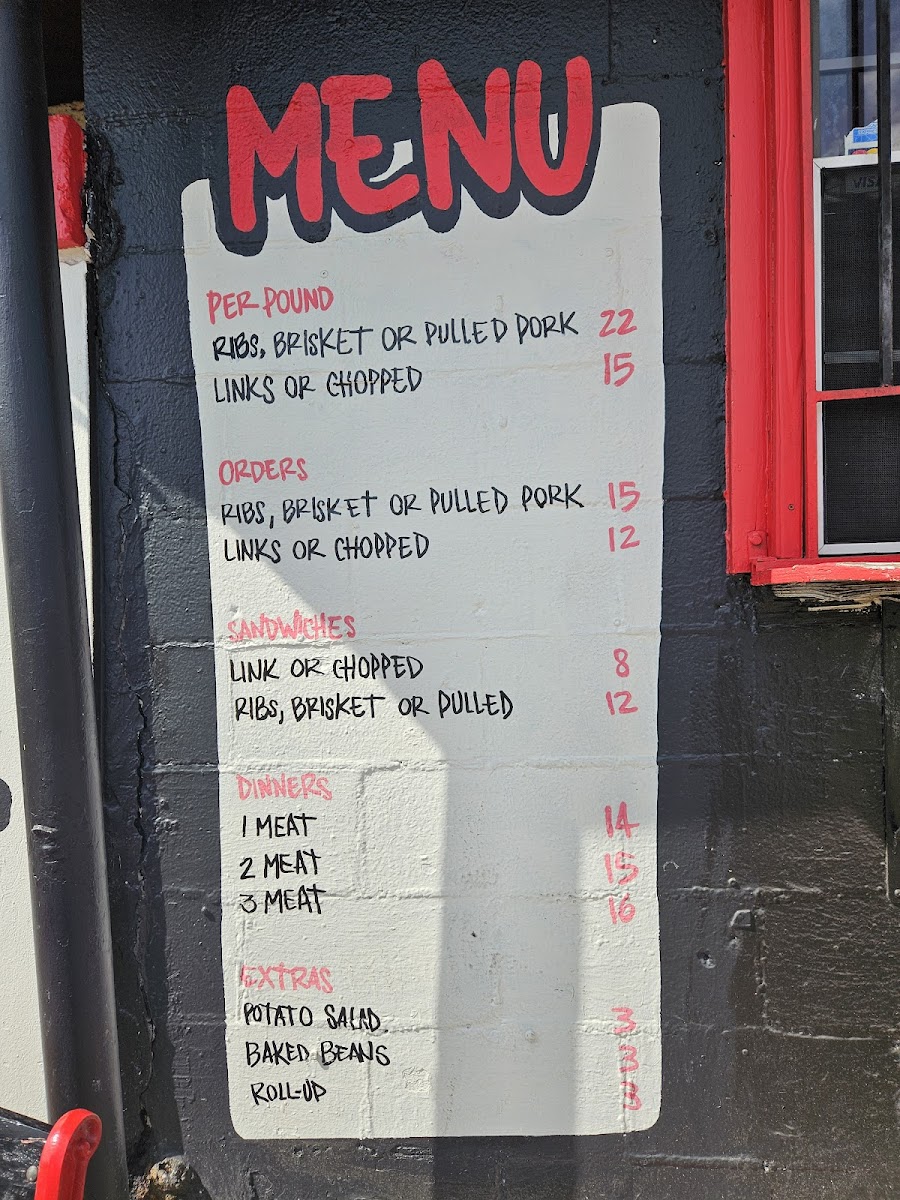 MENU
PER POUND
RIBS, BRISKET OR PULLED PORK 22
LINKS OR CHOPPED 15
ORDERS
RIBS, BRISKET OR PULLED PORK 15
LINKS OR CHOPPED 12
SANDWICHES
LINK OR CHOPPED 8
RIBS, BRISKET OR PULLED 12
DINNERS
1 MEAT 14
2 MEAT 15
3 MEAT 16
EXTRAS
POTATO SALAD 3
BAKED BEANS 3
ROLL-UP
VISA